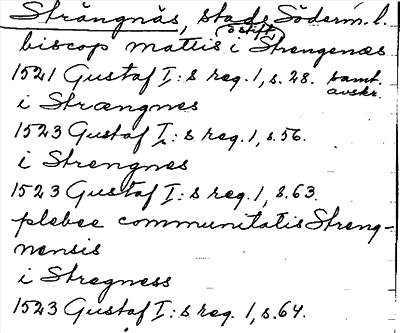 Strängnäs, stad, Söderm. l.
o stift
biscop mattis i Strengenæs
1521 Gustaf I:s reg. 1, s. 28. samt. avskr.
i Strængnes
1523 Gustaf I:s reg. 1, s. 56.
i Strengnes
1523 Gustaf I:s reg. 1, s. 63.
plebee communitatis Streng-
nensis
i Stregness
1523 Gustaf I:s reg. 1, s. 64.